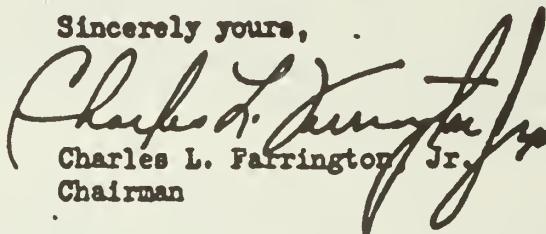 Sincerely yours,
Charles L. Farrington Jr.
Charles L. Farrington, Jr.
Chairman